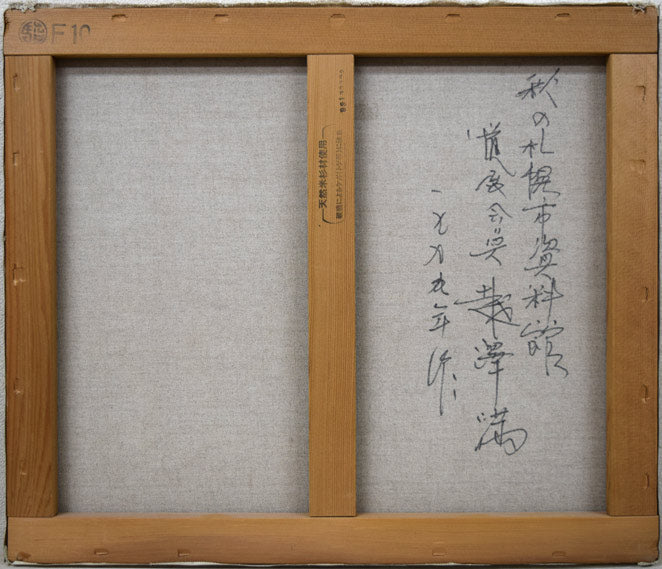 秋の札幌市資料館
道展会員 越澤満
一九九九年作
F10
天然米杉材使用